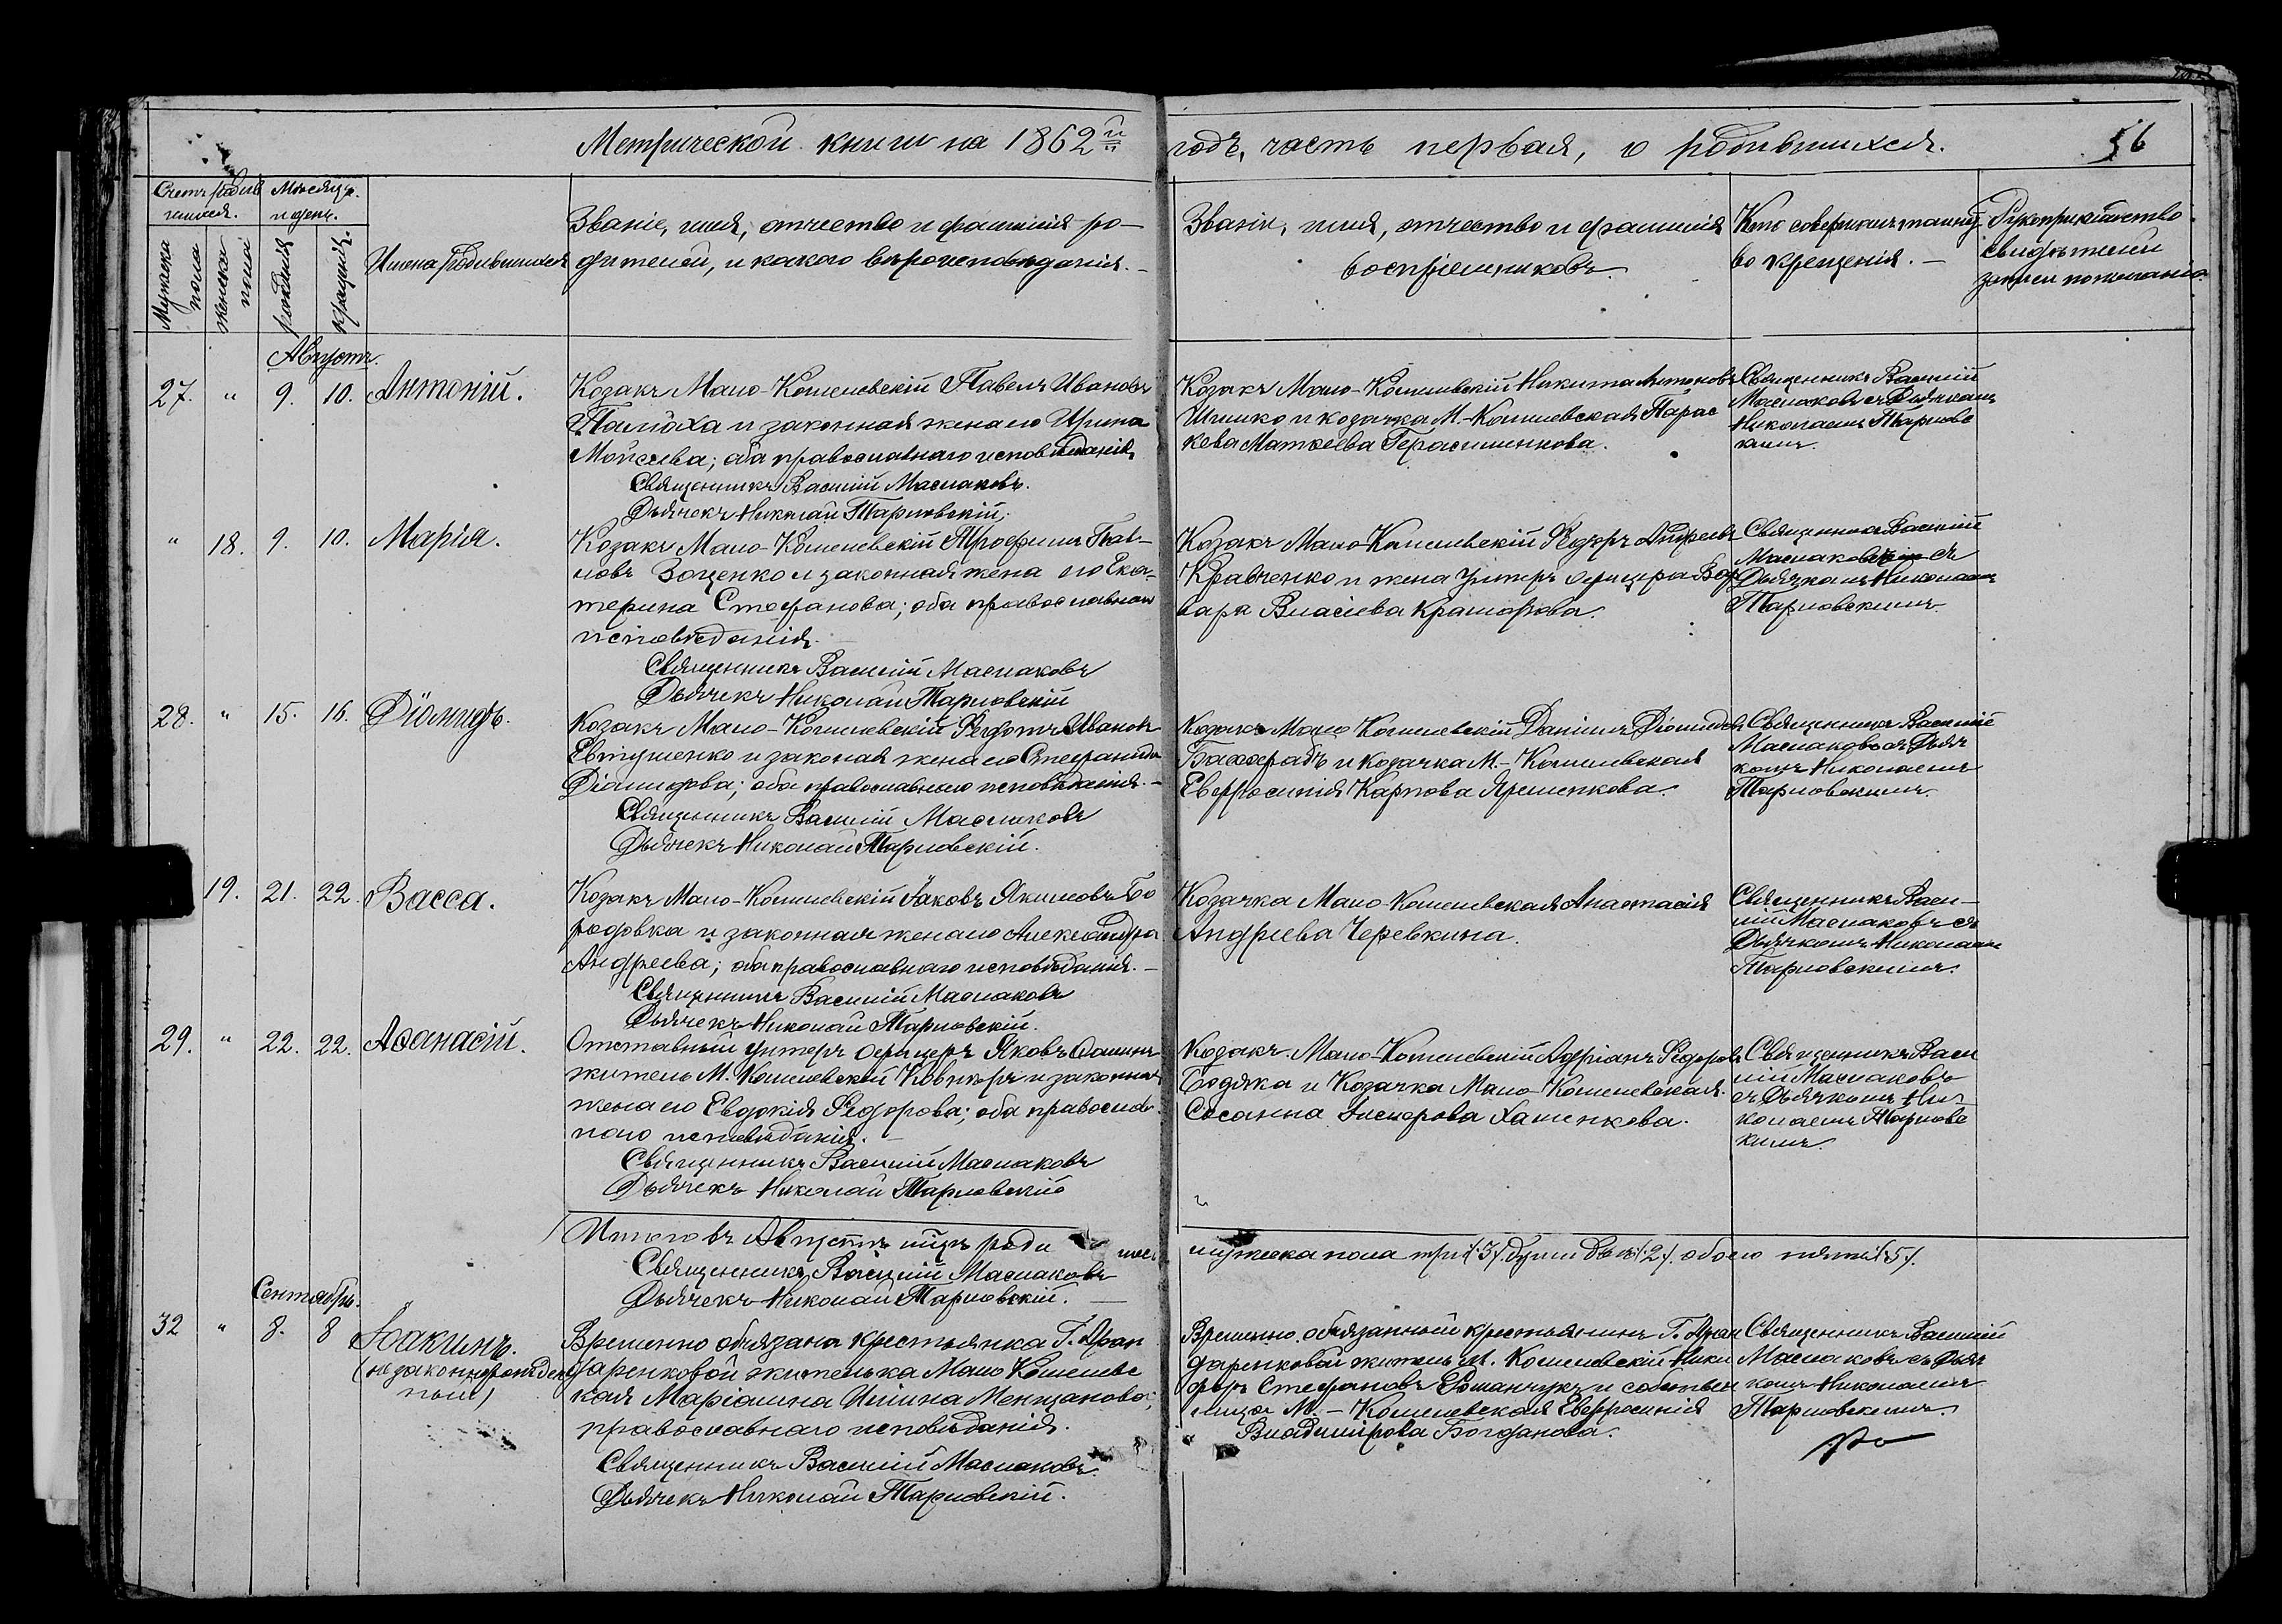 Метрической книги на 1862й годъ, часть первая, о родившихся.
56
Счетъ родив
шихся.
Мѣсяцъ
и день.
Мужеска
пола
женска
пола
рожденія
крещенія.
Имена родившихся
Званіе, имя, отчество и фамилія ро-
дителей, и какого вѣроисповѣданія.
Званіе, имя, отчество и фамилія
воспріемниковъ.
Кто совершилъ таинст
во крещенія.
Рукоприкладство
свидѣтелей
записи по желанію.
Августъ.
27. " 9. 10. Антоній.
Козакъ Мало-Кошелевскій Павелъ Ивановъ
и законная жена его Ирина
Мойсеева; оба православнаго исповѣданія,
Священникъ Василій Маслаковъ.
Дьячекъ Николай Тарновскій.
Козакъ Мало-Кошелевскій Никита Антоновъ
Шишко и козачка М.-Кошелевская Парас
кева Маткеева Герасименкова.
Священникъ Василій
Маслаковъ съ Дьячкомъ
Николаемъ Тарновс
кимъ.
" 18. 9. 10. Марія.
Козакъ Мало-Кошелевскій Трофимъ Пав-
ловъ Зощенко и законная жена его Ека-
терина Стефанова; оба православнаго
исповѣданія.
Священникъ Василій Маслаковъ
Дьячекъ Николай Тарновскій
Козакъ Мало-Кошелевскій Федоръ Андреевъ
Кравченко и жена Унтеръ офицера Вар
вара Власіева
Священникъ Василій
Маслаковъ съ
Дьячкомъ Николаемъ
Тарновскимъ
28. " 15. 16. Діомидъ.
Козакъ Мало-Кошелевскій Федотъ Ивановъ
Евтушенко и законая жена его Стефанида
Діомидова; оба православнаго исповѣданія.
Священникъ Василій Маслаковъ
Дьячекъ Николай Тарновскій.
Козакъ Мало Кошелевскій Даніилъ Діомидовъ
и козачка М.-Кошелевская
Евфросинія Карпова Яременкова.
Священникъ Василій
Маслаковъ съ Дьяч
комъ Николаемъ
Тарновскимъ.
19. 21. 22. Васса.
Козакъ Мало-Кошелевскій Іаковъ Якимовъ Бо
родовка и законная жена его Александра
Андреева; оба православнаго исповѣданія.
Священникъ Василій Маслаковъ
Дьячекъ Николай Тарновскій.
Козачка Мало-Кошелевская Анастасія
Андреева Черевкина.
Священникъ Васи-
лій Маслаковъ съ
Дьячкомъ Николаемъ
Тарновскимъ.
29. " 22. 22. Аѳанасій.
Отставный Унтеръ Офицеръ Яковъ
житель М. Кошелевскій и законная
жена его Евдокія Федорова; оба православ
наго исповѣданія.
Священникъ Василій Маслаковъ
Дьячекъ Николай Тарновскій
Козакъ Мало-Кошелевскій Адріанъ Федоровъ
Бодяка и Козачка Мало-Кошелевская
Сосанна
Священникъ Васи
лій Маслаковъ
съ Дьячкомъ Ни-
колаемъ Тарновс
кимъ.
Итого въ Августѣ мцѣ роди
мужска пола три /:3/. душъ двѣ /:2/. обоего пять /:5/.
Священникъ Василій Маслаковъ
Дьячекъ Николай Тарновскій.
Сентябрь.
32 " 8. 8 Іоакимъ.
(незаконнорожден
ный)
Временно обязана крестьянка Г.
житолька Мало Кошелевс
кая Маріамна
православнаго исповѣданія.
Священникъ Василій Маслаковъ.
Дьячекъ Николай Тарновскій.
Временно обязанный крестьянинъ Г.
житель М. Кошелевскій Ники
форъ Стефановъ Романчукъ и
М.-Кошелевская Евфросинія
Владимірова Богданова.
Священникъ Василій
Маслаковъ съ Дьяч
комъ Николаемъ
Тарновскимъ.